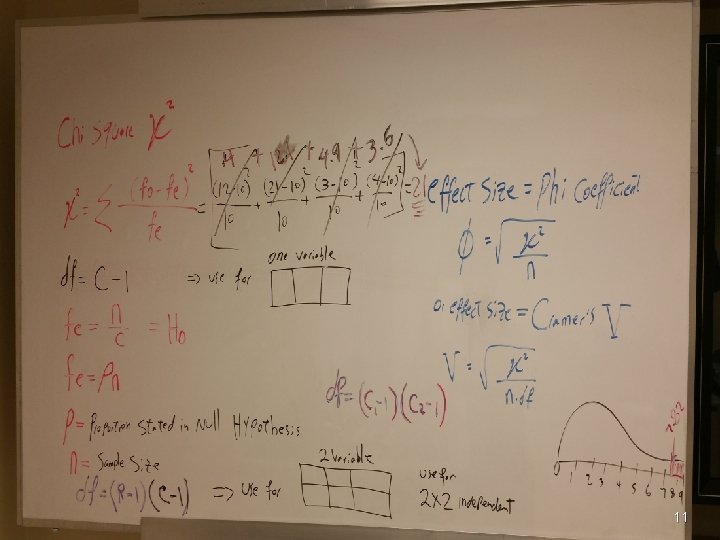 Chi square χ²
+ 4.9 + 3.6
χ² = Σ (fo-fe)² / fe = [(12-10)²/10 + (21-10)²/10 + (3-10)²/10 + (4-10)²/10] = 21
effect size = Phi Coefficient
φ = √(χ²/n)
df = C-1 => use for one variable
fe = n/c = Ho
or effect size = Cramer's V
fe = Pn
V = √(χ²/n.df)
df = (C₁-1)(C₂-1)
P = Proportion stated in Null Hypothesis
n = Sample Size
df = (R-1)(C-1) => use for 2 Variable
use for
2x2 independent
0 1 2 3 4 5 6 7 8 9
11